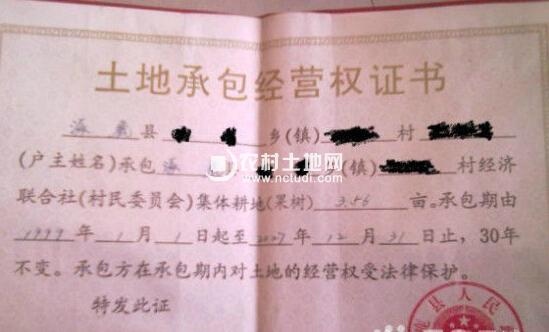 土地承包经营权证书
县 乡(镇) 村
(户主姓名)承包 (镇) 村经济
联合社(村民委员会)集体耕地(果树) 3.56 亩。承包期由
1999 年 1 月 1 日起至 2027 年 12 月 31 日止,30年
不变。承包方在承包期内对土地的经营权受法律保护。
特发此证
农村土地网
www.nctudi.com
县人民